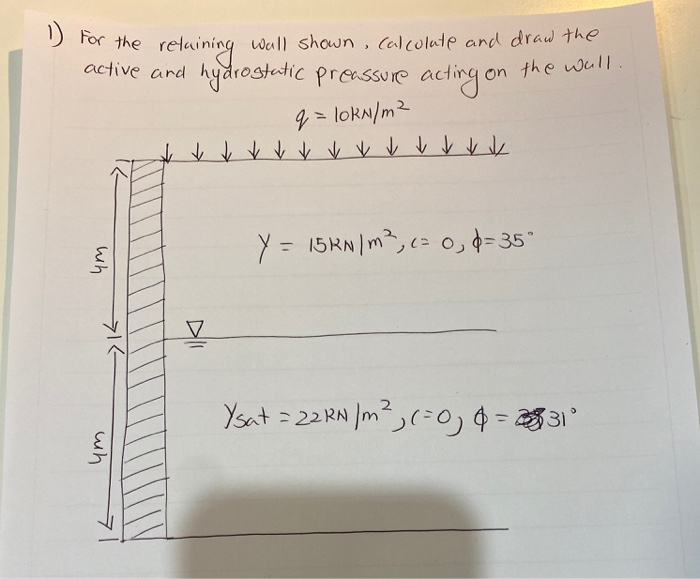 1) For the retaining wall shown, calculate and draw the
active and hydrostatic preassure acting on the wall.
q = 10kN/m²
γ = 15kN/m², c= 0, φ=35°
4m
γsat = 22kN/m², c=0, φ = 31°
4m